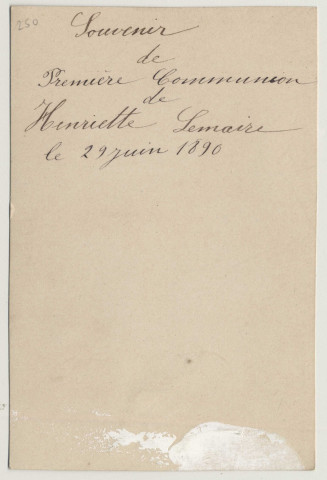 250
Souvenir
de
Première Communion
de
Henriette Lemaire
le 29 juin 1890